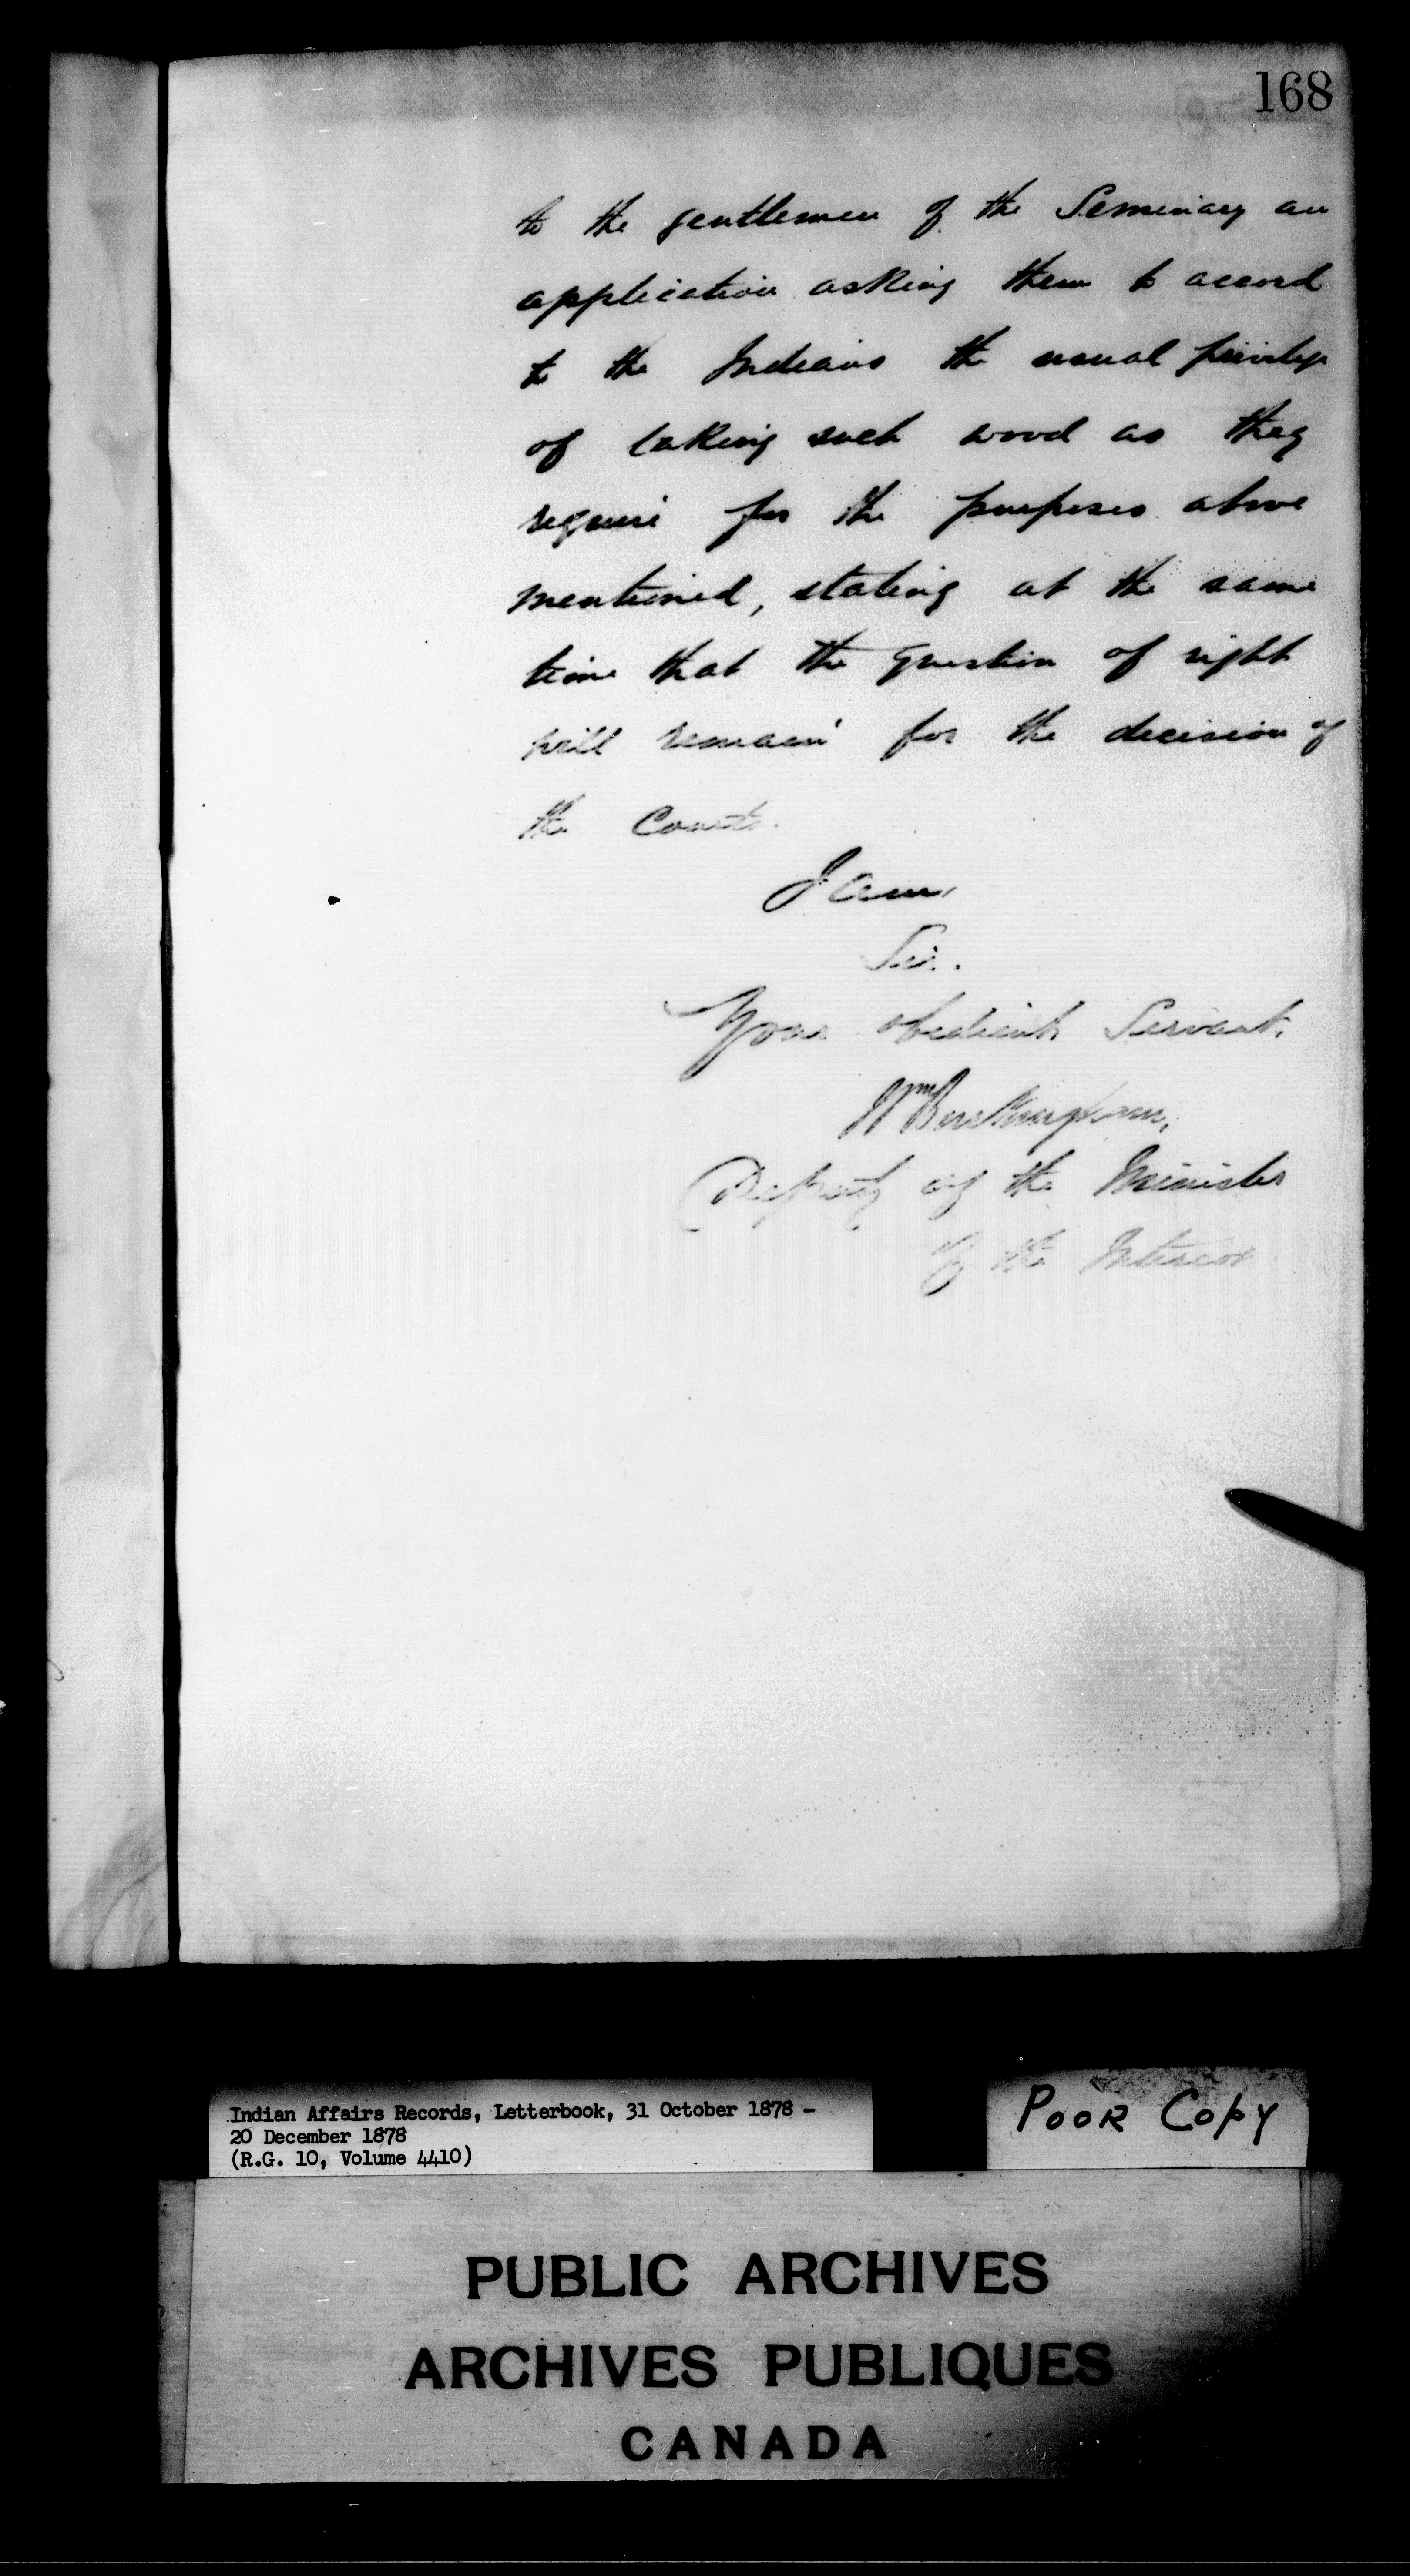 168
to the gentlemen of the Seminary an
application asking them to accord
to the Indians the usual privilege
of taking such wood as they
require for the purposes above
mentioned, stating at the same
time that the question of right
will remain for the decision of
the Courts.
I am,
Sir.
Your obedient Servant,
Wm Buckingham,
Deputy of the Minister
of the Interior
Indian Affairs Records, Letterbook, 31 October 1878 -
20 December 1878
(R.G. 10, Volume 4410)
POOR COPY
PUBLIC ARCHIVES
ARCHIVES PUBLIQUES
CANADA